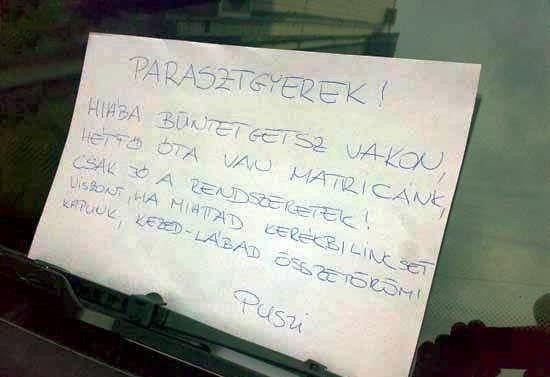 PARASZTGYEREK!
HIÁBA BÜNTETGETSZ VAKON,
HÉTFŐ ÓTA VAN MATRICÁNK,
CSAK JÓ A RENDSZERETEK!
VISZONT, HA MIATTAD KERÉKBILINCSET
KAPUNK, KEZED-LÁBAD ÖSSZETÖRÖM!
PUSZI